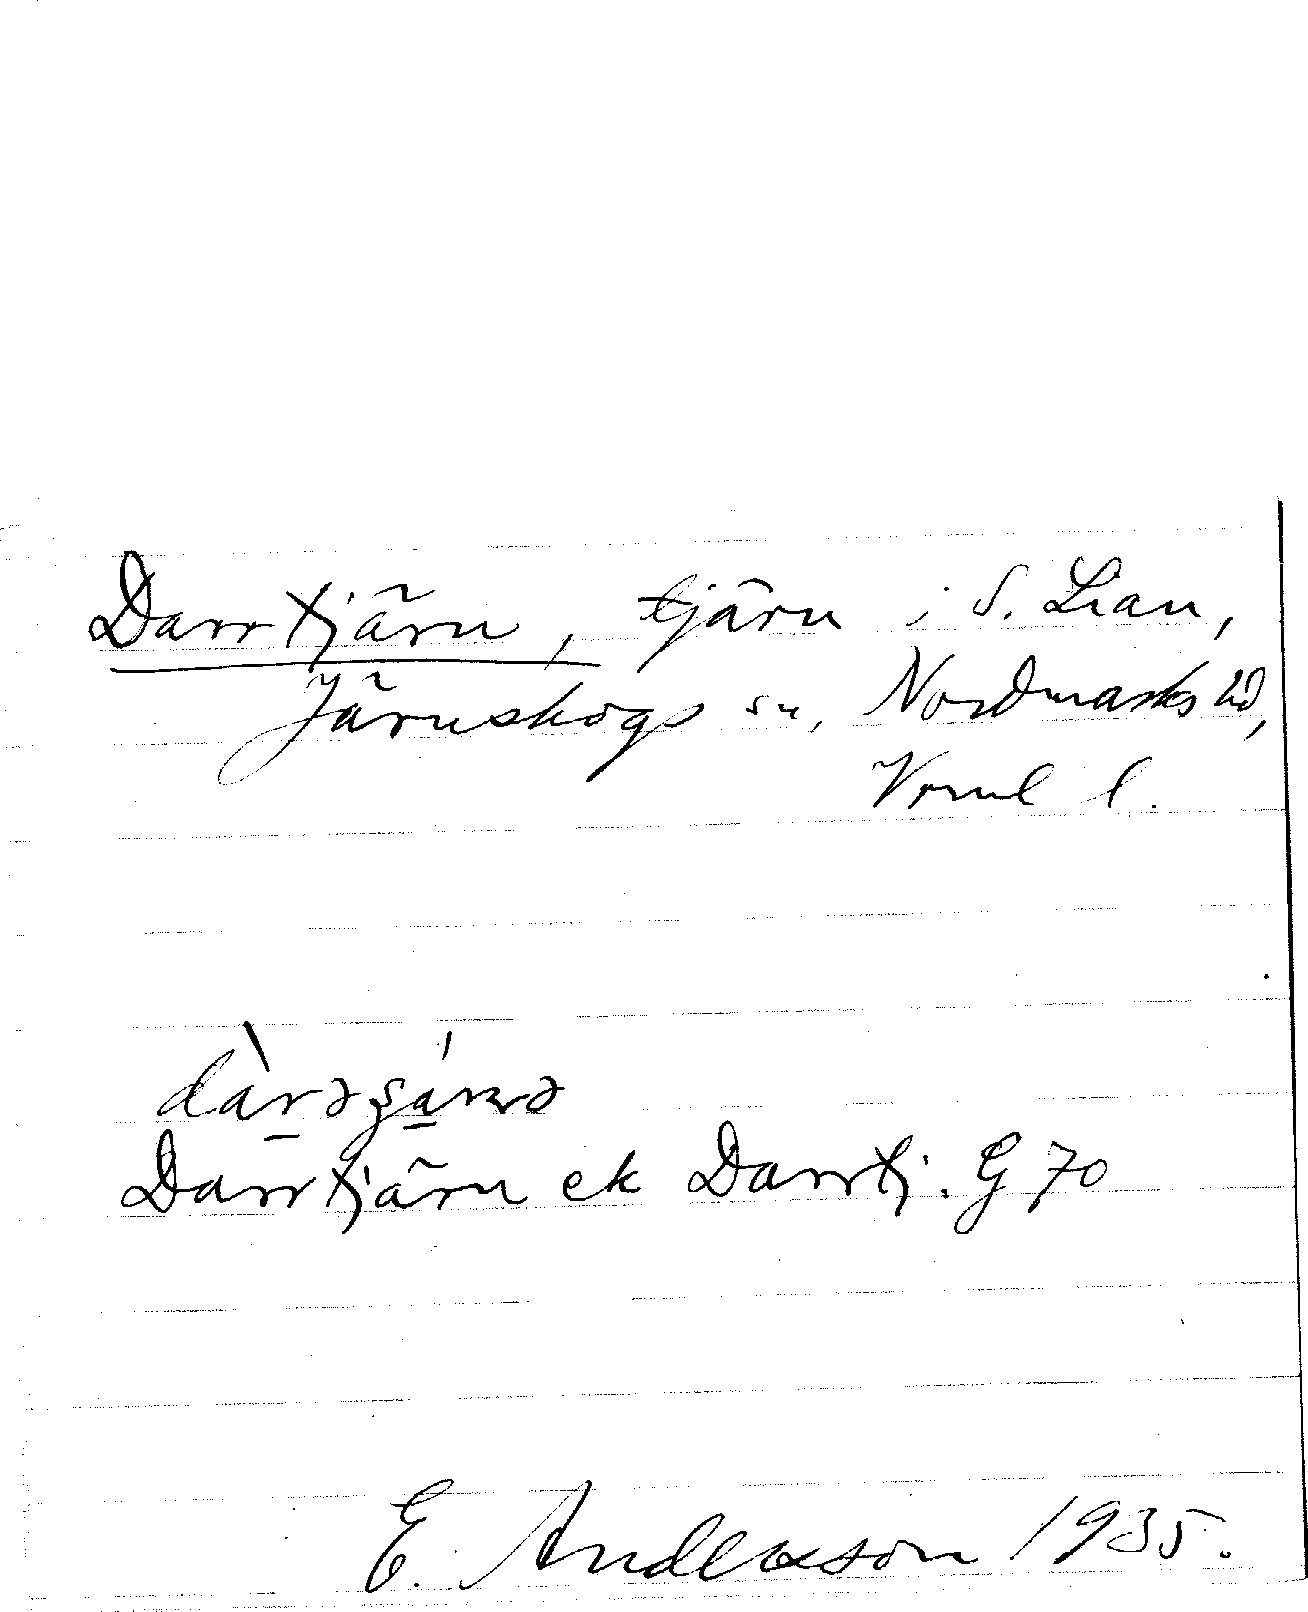 Darrtjärn, tjärn i S. Lian,
Järnskogs sn, Nordmarks hd,
Vrml l.
Darrtjärn ek Darrtj. G 70
E. Andersson 1935.